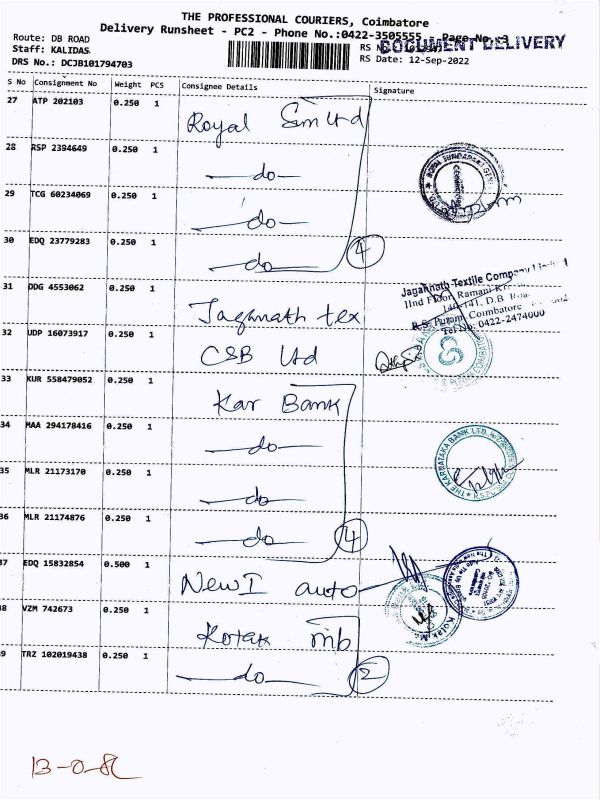 THE PROFESSIONAL COURIERS, Coimbatore
Delivery Runsheet - PC2 - Phone No.:0422-3505555 - Page No. 3
Route: DB ROAD
DOCUMENT DELIVERY
Staff: KALIDAS
RS No
DRS No.: DCJB101794703
RS Date: 12-Sep-2022
S No Consignment No Weight PCS Consignee Details Signature
27 ATP 202103 0.250 1
Royal Sm Ltd
28 RSP 2394649 0.250 1
do
29 TCG 60234069 0.250 1
do
30 EDQ 23779283 0.250 1
do 4
31 DDG 4553062 0.250 1
Jagannath tex
Jagannath Textile Company Limited
IInd Floor, Ramani
140, 141, D.B
R.S. Puram, Coimbatore
Tel No: 0422-2474000
32 UDP 16073917 0.250 1
CSB Ltd
33 KUR 558479052 0.250 1
Kar Bank
34 MAA 294178416 0.250 1
do
THE KARNATAKA BANK LTD.
35 MLR 21173170 0.250 1
do
36 MLR 21174876 0.250 1
do 4
37 EDQ 15832854 0.500 1
New I auto
38 VZM 742673 0.250 1
Kotak mb
39 TRZ 102019438 0.250 1
do 2